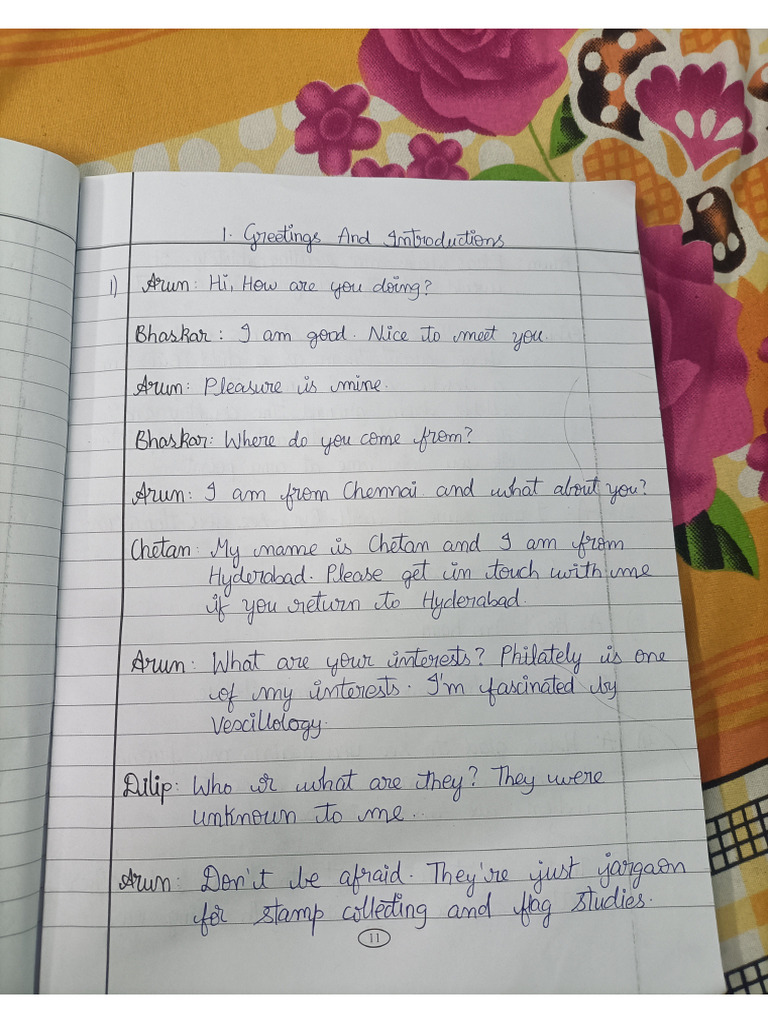 1. Greetings And Introductions
1) Arun: Hi, How are you doing?
Bhaskar: I am good. Nice to meet you.
Arun: Pleasure is mine.
Bhaskar: Where do you come from?
Arun: I am from Chennai and what about you?
Chetan: My name is Chetan and I am from
Hyderabad. Please get in touch with me
if you return to Hyderabad.
Arun: What are your interests? Philately is one
of my interests. I'm fascinated by
Vexillology.
Dilip: Who or what are they? They were
unknown to me..
Arun: Don't be afraid. They're just jargaon
for stamp collecting and flag studies.
11